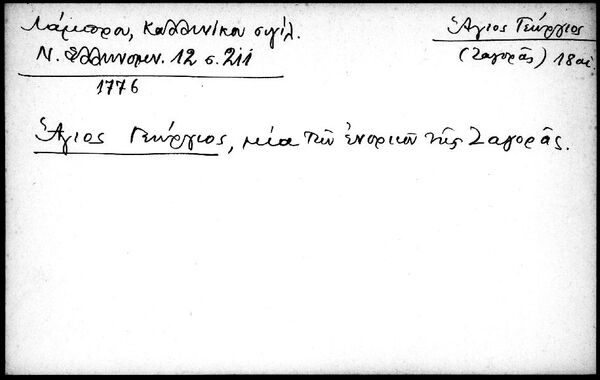 Λάμπρου, Καλλινίκου σιγίλ.
Ν. Ἑλληνομν. 12 σ. 211
1776
Ἅγιος Γεώργιος
(Ζαγορᾶς) 18 αἰ.
Ἅγιος Γεώργιος, μία τῶν ἐνοριῶν τῆς Ζαγορᾶς.